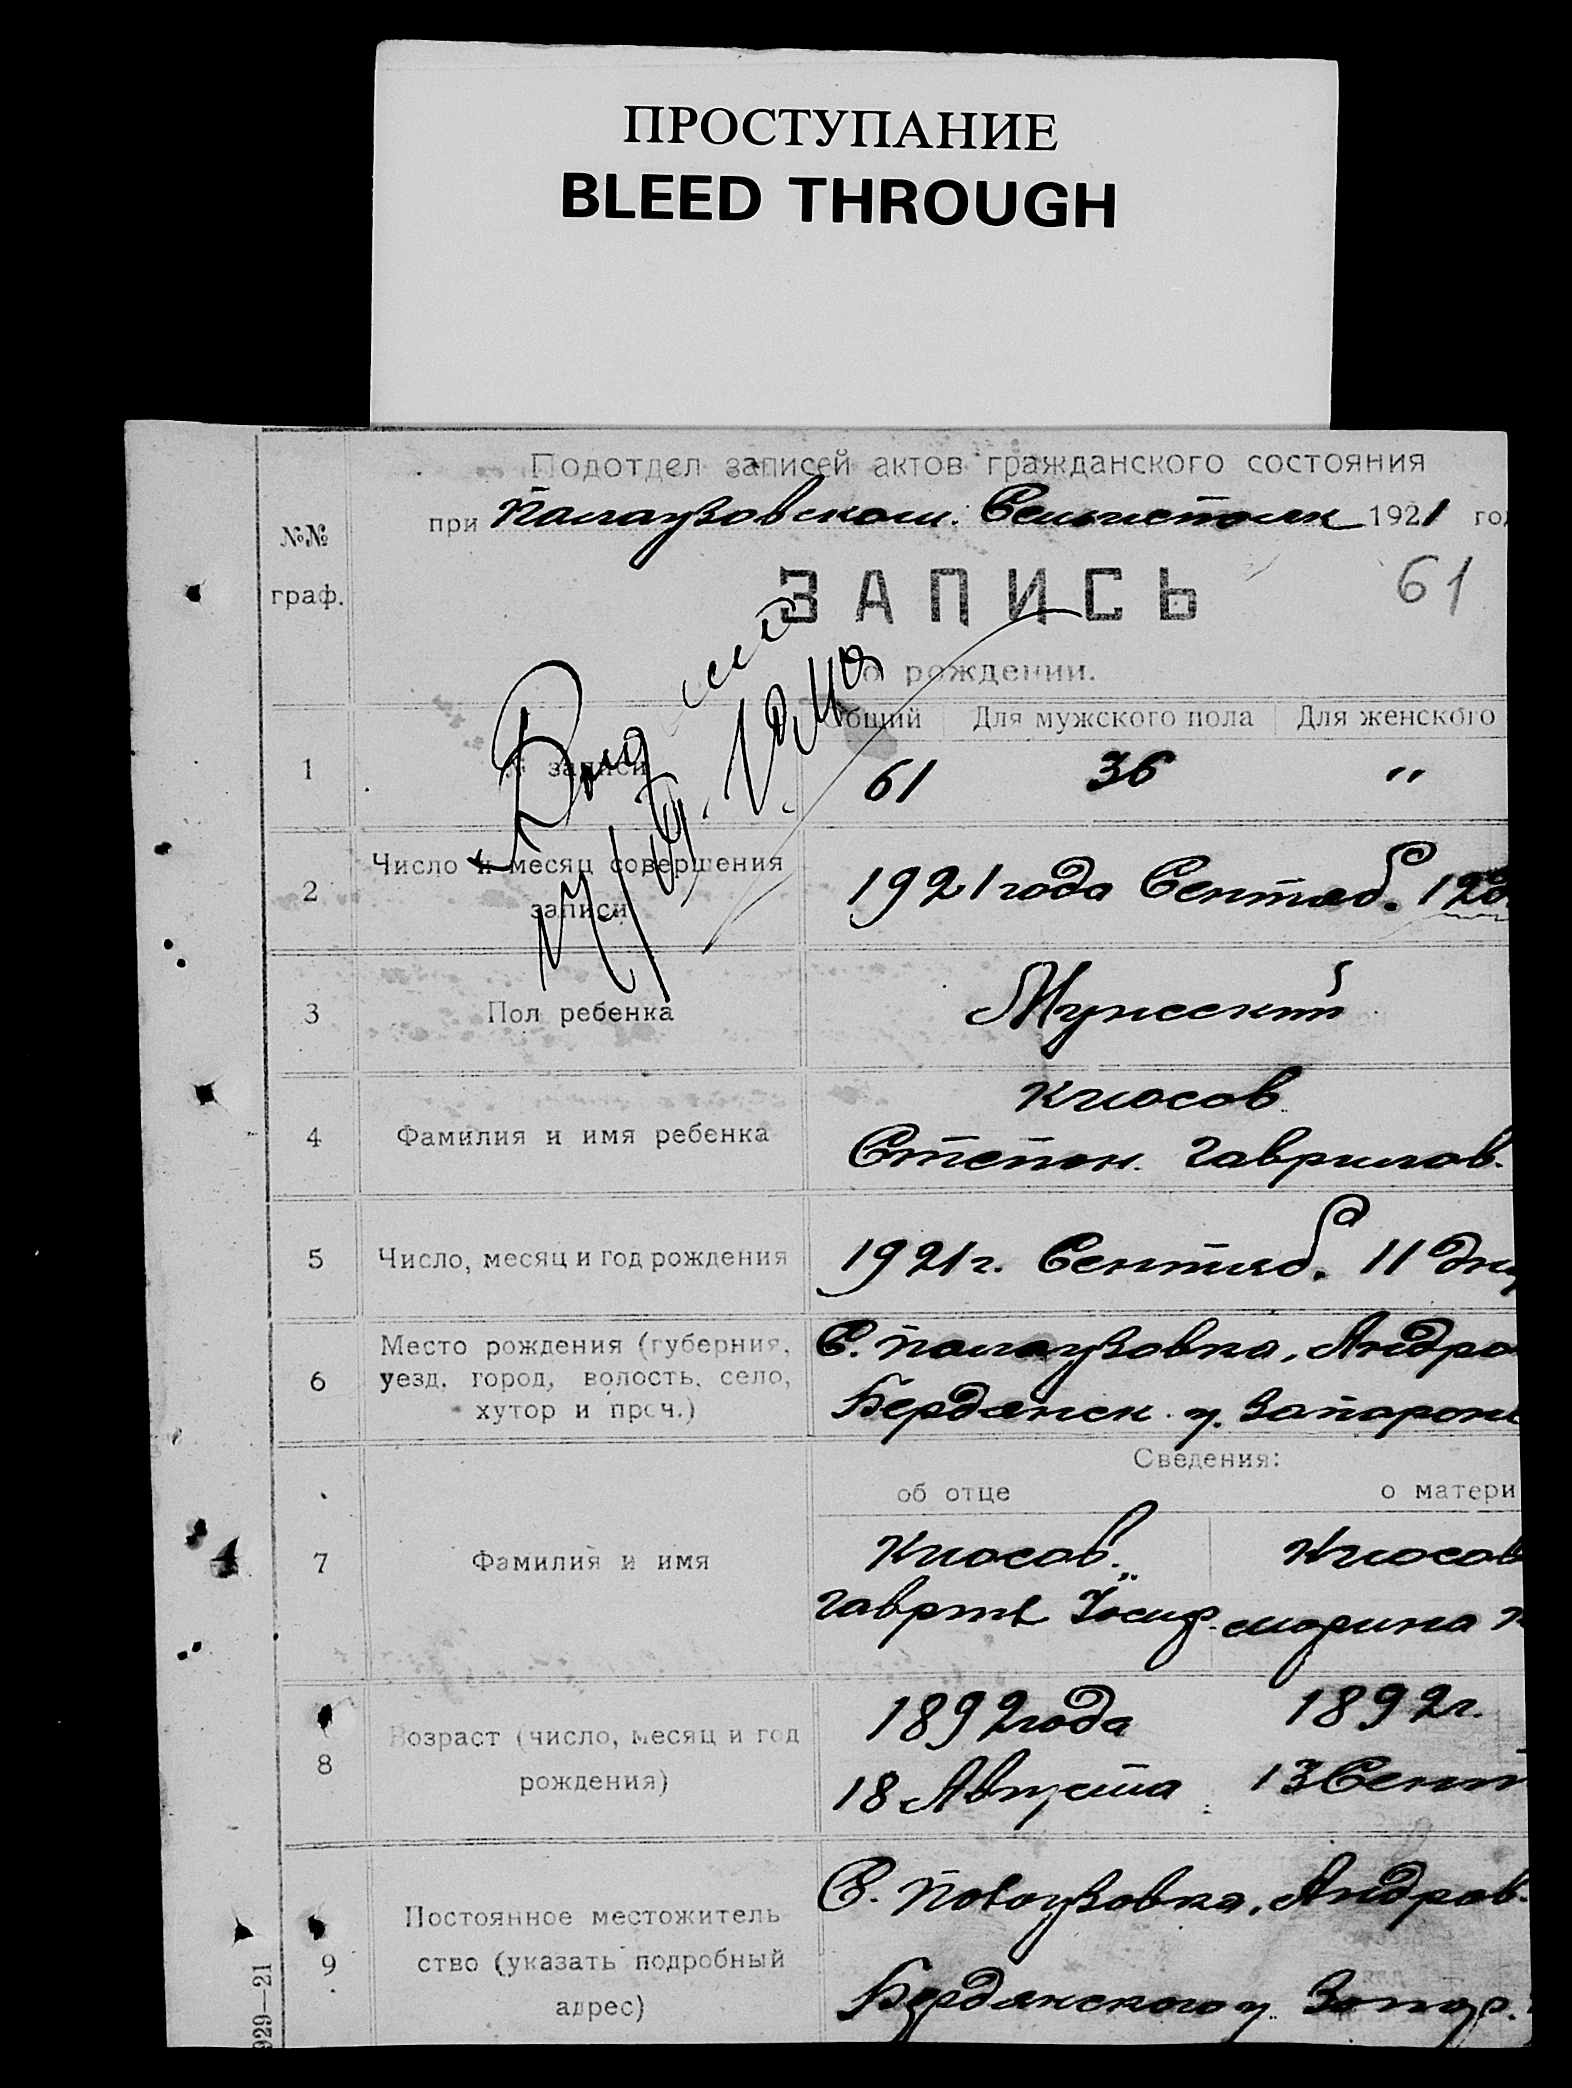 ПРОСТУПАНИЕ
BLEED THROUGH
Подотдел записей актов гражданского состояния
при Палаузовском. 1921 го
№№
граф.
ЗАПИСЬ
61
о рождении.
Общий Для мужского пола Для женского
1 № записи 61 36 〃
2 Число и месяц совершения
записи
1921 года Сентяб. 12
3 Пол ребенка Мужеский
4 Фамилия и имя ребенка
Кюсов
Степан. Гаврилов.
5 Число, месяц и год рождения 1921 г. Сентяб. 11 дня
6 Место рождения (губерния,
уезд, город, волость, село,
хутор и проч.)
С. Палаузовка, Андро
Бердянск. у. Запарож
Сведения:
об отце о матери
7 Фамилия и имя
Кюсов. Кюсов
Гаврил Іосиф. Марина
8 Возраст (число, месяц и год
рождения)
1892 года 1892 г.
18 Августа 13 Сент
9 Постоянное местожитель
ство (указать подробный
адрес)
С. Полоузовка, Андров.
Бердянского у. Запор.
929—21